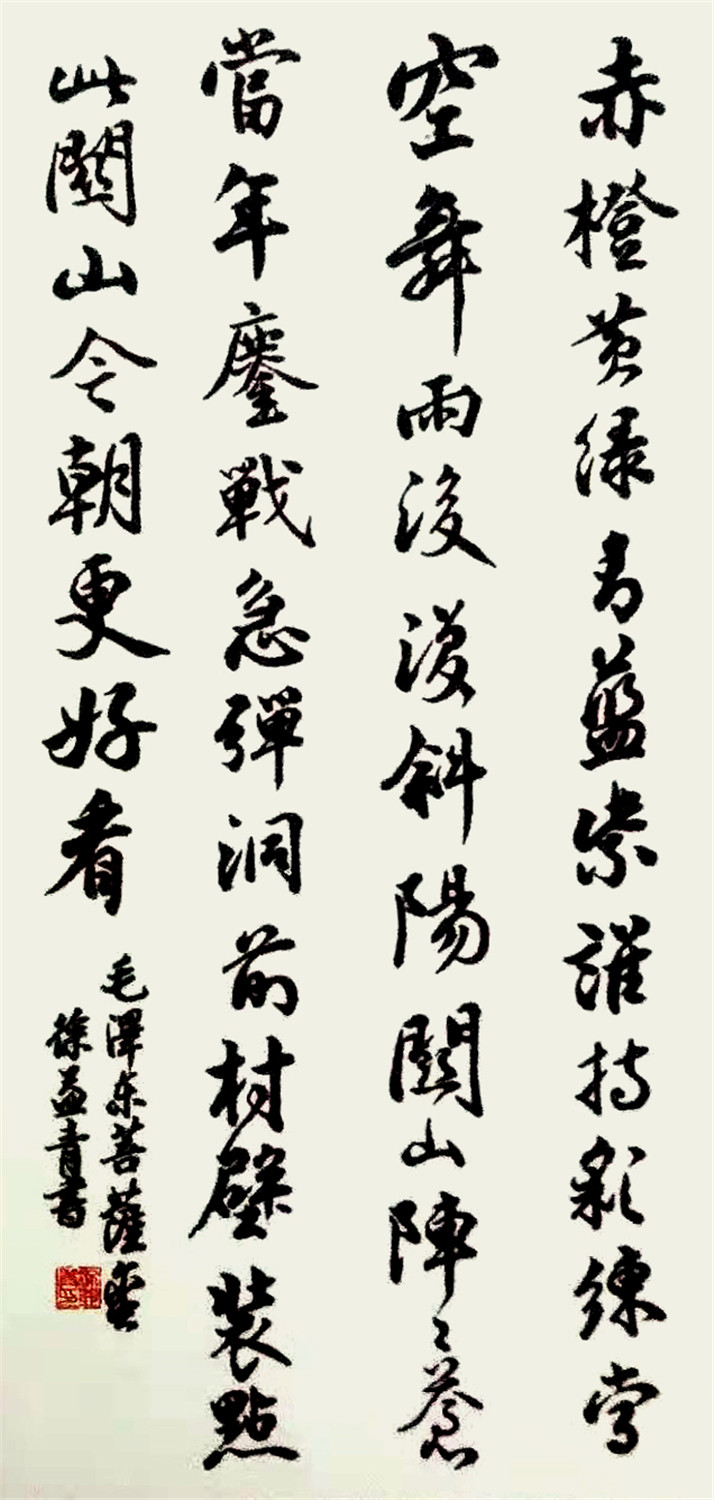 赤橙黄绿青藍紫誰持彩練當
空舞雨後復斜陽關山陣〻蒼
當年鏖戰急彈洞前村壁裝點
此關山今朝更好看
毛澤东菩薩蠻
徐益青書